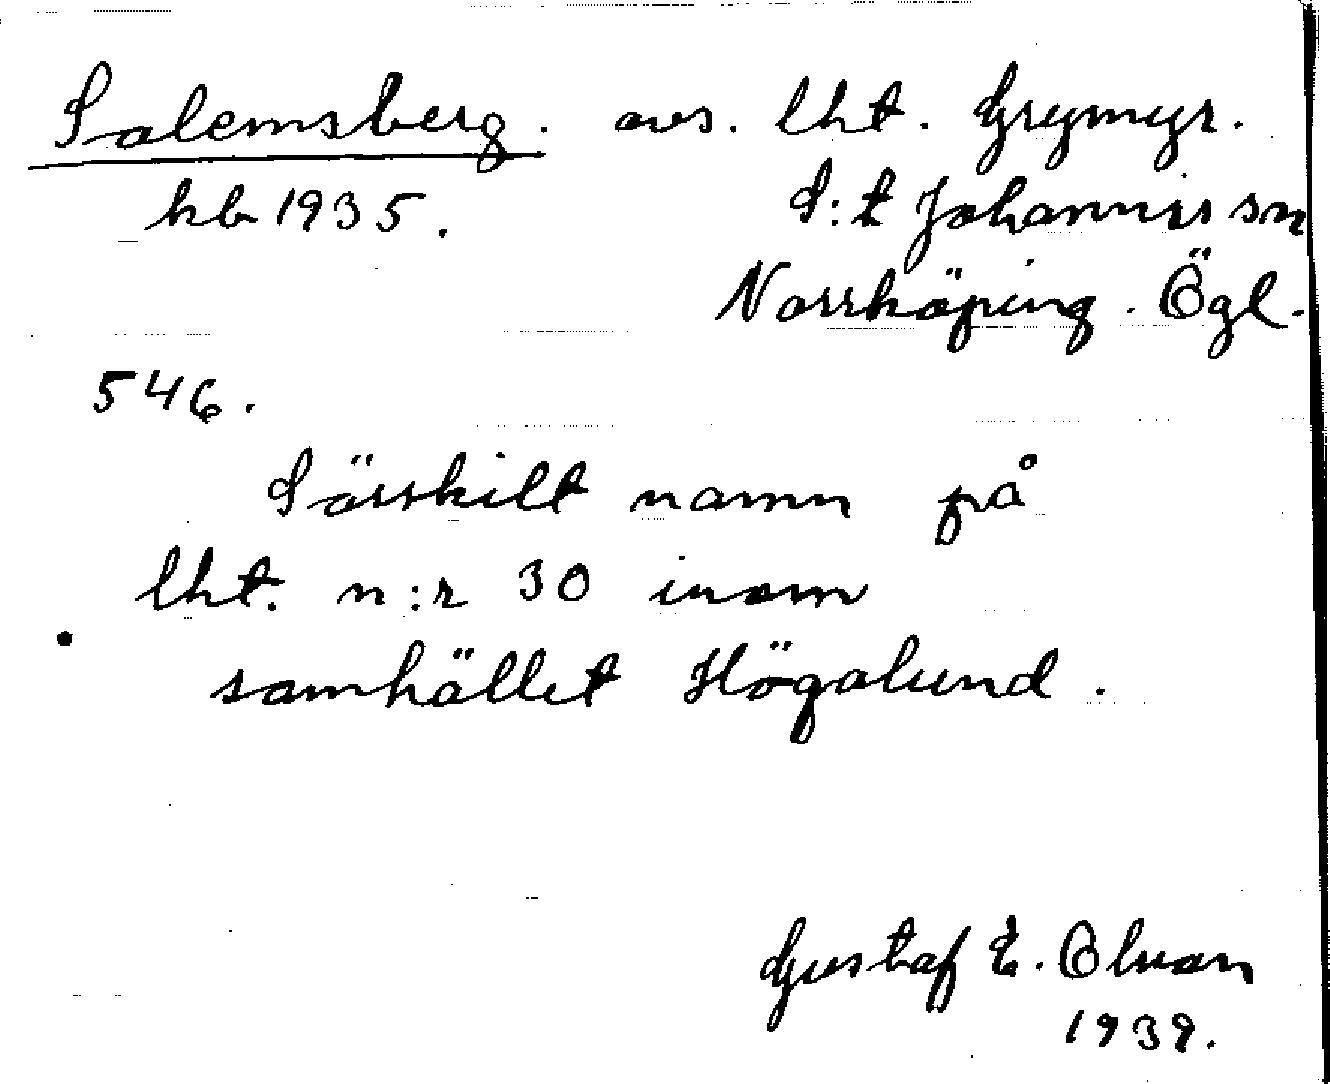 Salemsberg. avs. lht. Grymyr.
hb 1935. S:t Johannis sn
Norrköping. Ögl.
546.
Särskilt namn på
lht. n:r 30 inom
samhället Högalund.
Gustaf E. Olvan
1939.